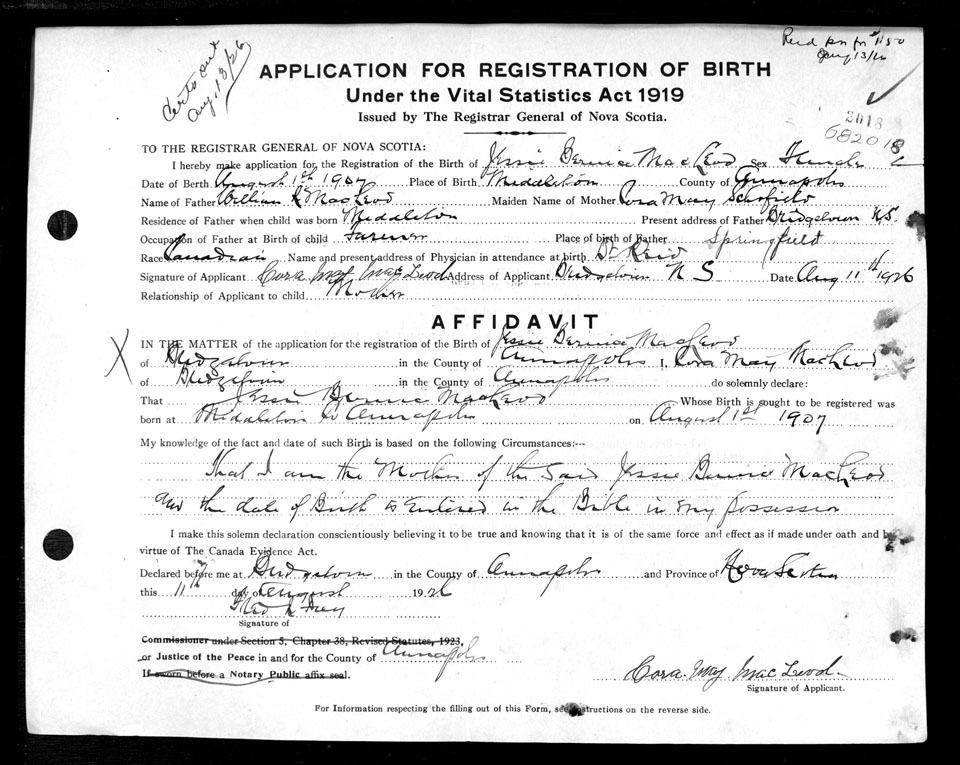 Certo out
Aug. 13/26
APPLICATION FOR REGISTRATION OF BIRTH
Under the Vital Statistics Act 1919
Issued by The Registrar General of Nova Scotia.
2018
682018
TO THE REGISTRAR GENERAL OF NOVA SCOTIA:
I hereby make application for the Registration of the Birth of Jessie Bernice MacLeod Sex Female
Date of Berth August 1st 1907 Place of Birth Middleton County of Annapolis
Name of Father William R MacLeod Maiden Name of Mother Cora May Schofield
Residence of Father when child was born Middleton Present address of Father Bridgetown N.S.
Occupation of Father at Birth of child Farmer Place of birth of Father Springfield
Race Canadian Name and present address of Physician in attendance at birth Dr Reid
Signature of Applicant Cora May MacLeod Address of Applicant Bridgetown N S Date Aug 11th 1926
Relationship of Applicant to child Mother
AFFIDAVIT
X IN THE MATTER of the application for the registration of the Birth of Jessie Bernice MacLeod
of Bridgetown in the County of Annapolis I, Cora May MacLeod
of Bridgetown in the County of Annapolis do solemnly declare:
That Jessie Bernice MacLeod Whose Birth is sought to be registered was
born at Middleton Co Annapolis on August 1st 1907
My knowledge of the fact and date of such Birth is based on the following Circumstances:—
That I am the Mother of the said Jessie Bernice MacLeod
and the date of Birth is Entered in the Bible in my possession
I make this solemn declaration conscientiously believing it to be true and knowing that it is of the same force and effect as if made under oath and by
virtue of The Canada Evidence Act.
Declared before me at Bridgetown in the County of Annapolis and Province of Nova Scotia
this 11th day of August 1926
Signature of
Commissioner under Section 5, Chapter 38, Revised Statutes, 1923,
or Justice of the Peace in and for the County of Annapolis
If sworn before a Notary Public affix seal.
Cora May MacLeod
Signature of Applicant.
For Information respecting the filling out of this Form, see instructions on the reverse side.